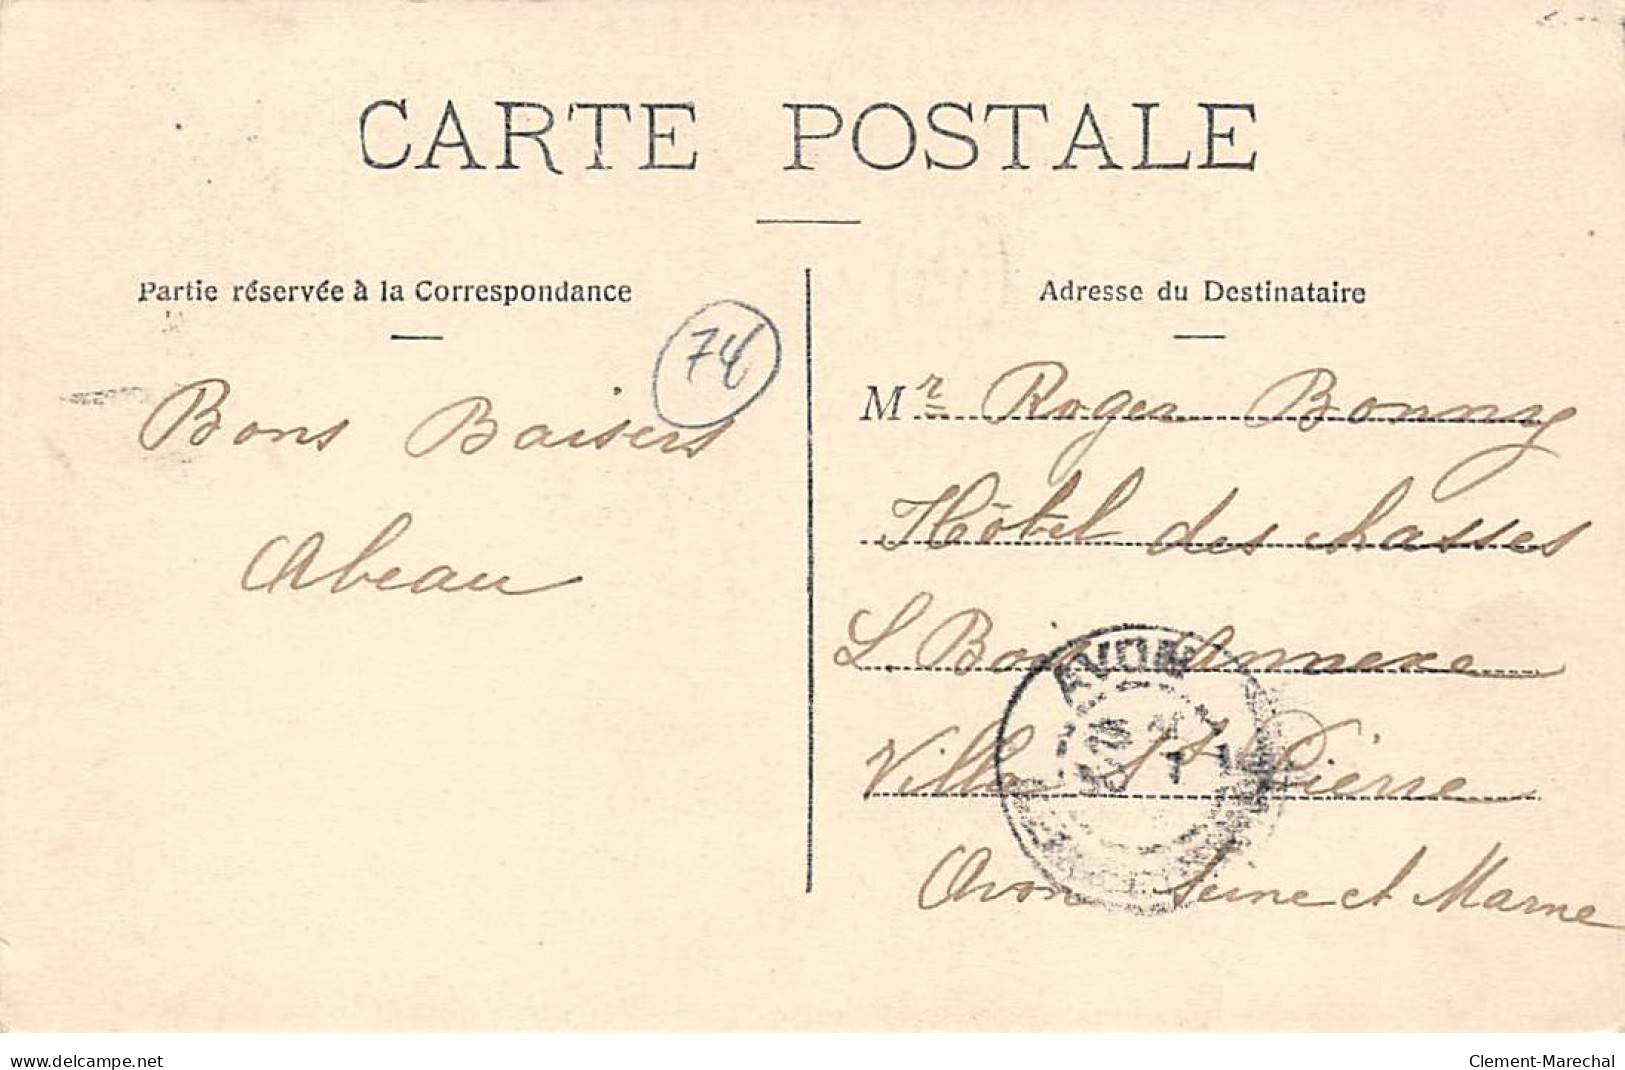 CARTE POSTALE
Partie réservée à la Correspondance
74
Bons Baisers
Abeau
Adresse du Destinataire
Mr Roger Bonnry
Hôtel des chasses
L. Bois Annexe
Villa St Pierre
Avon Seine et Marne
AVON
www.delcampe.net
Clement-Marechal